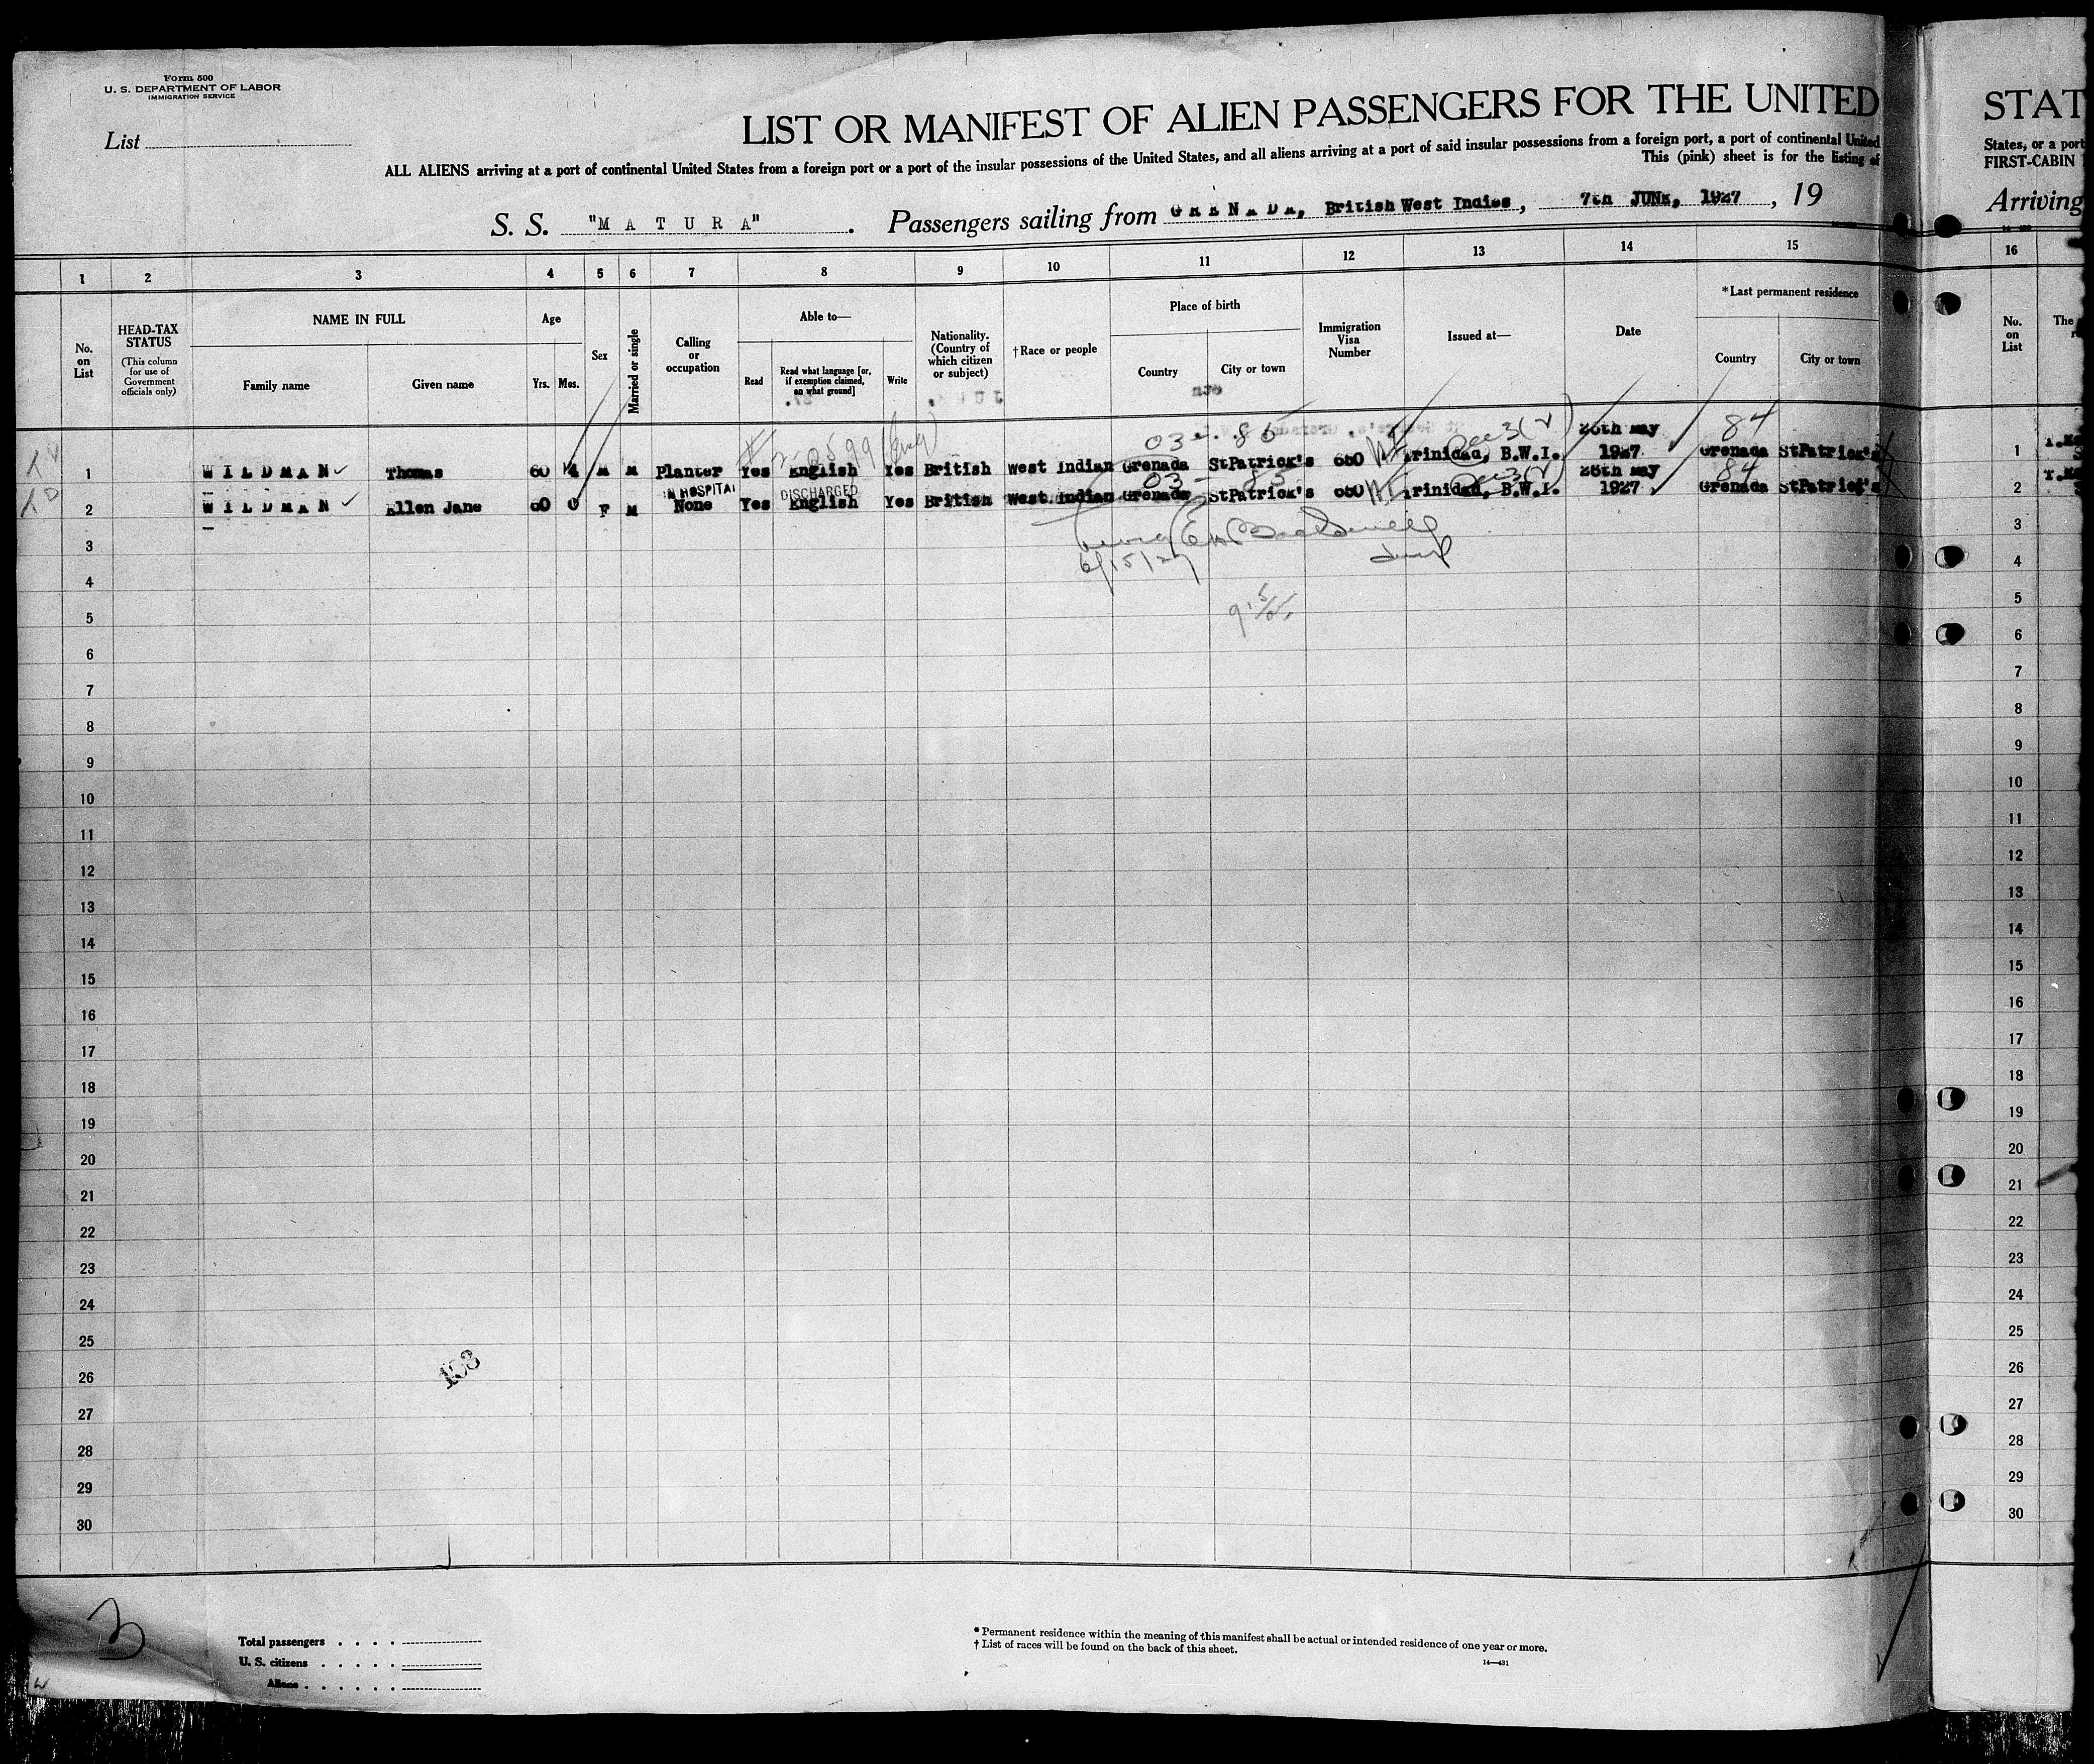 Form 500
U. S. DEPARTMENT OF LABOR
IMMIGRATION SERVICE
List
LIST OR MANIFEST OF ALIEN PASSENGERS FOR THE UNITED
ALL ALIENS arriving at a port of continental United States from a foreign port or a port of the insular possessions of the United States, and all aliens arriving at a port of said insular possessions from a foreign port, a port of continental United
This (pink) sheet is for the listing of
S. S. "M A T U R A". Passengers sailing from GRENADA, British West Indies, 7th JUNE, 1927, 19
STAT
States, or a port
FIRST-CABIN
Arriving
1 2 3 4 5 6 7 8 9 10 11 12 13 14 15 16
No. on List
HEAD-TAX STATUS
(This column for use of Government officials only)
NAME IN FULL
Family name
Given name
Age
Yrs. Mos.
Sex
Married or single
Calling or occupation
Able to—
Read
Read what language [or, if exemption claimed, on what ground]
Write
Nationality. (Country of which citizen or subject)
†Race or people
Place of birth
Country
City or town
Immigration Visa Number
Issued at—
Date
*Last permanent residence
Country
City or town
No. on List
The
03 - 86
84
1 WILDMAN Thomas 60 M M Planter Yes English Yes British West Indian Grenada StPatrick's Trinidad, B.W.I. 26th May 1927 Grenada StPatrick's 1
IN HOSPITAL DISCHARGED
03 - 85
84
2 WILDMAN Ellen Jane 60 F M None Yes English Yes British West Indian Grenada StPatrick's Trinidad, B.W.I. 26th May 1927 Grenada StPatrick's 2
6/15/27
3 3
4 4
5 5
6 6
7 7
8 8
9 9
10 10
11 11
12 12
13 13
14 14
15 15
16 16
17 17
18 18
19 19
20 20
21 21
22 22
23 23
24 24
25 25
26 26
27 27
28 28
29 29
30 30
3
Total passengers . . . .
U. S. citizens . . . . .
Aliens . . . . . .
* Permanent residence within the meaning of this manifest shall be actual or intended residence of one year or more.
† List of races will be found on the back of this sheet.
14—431